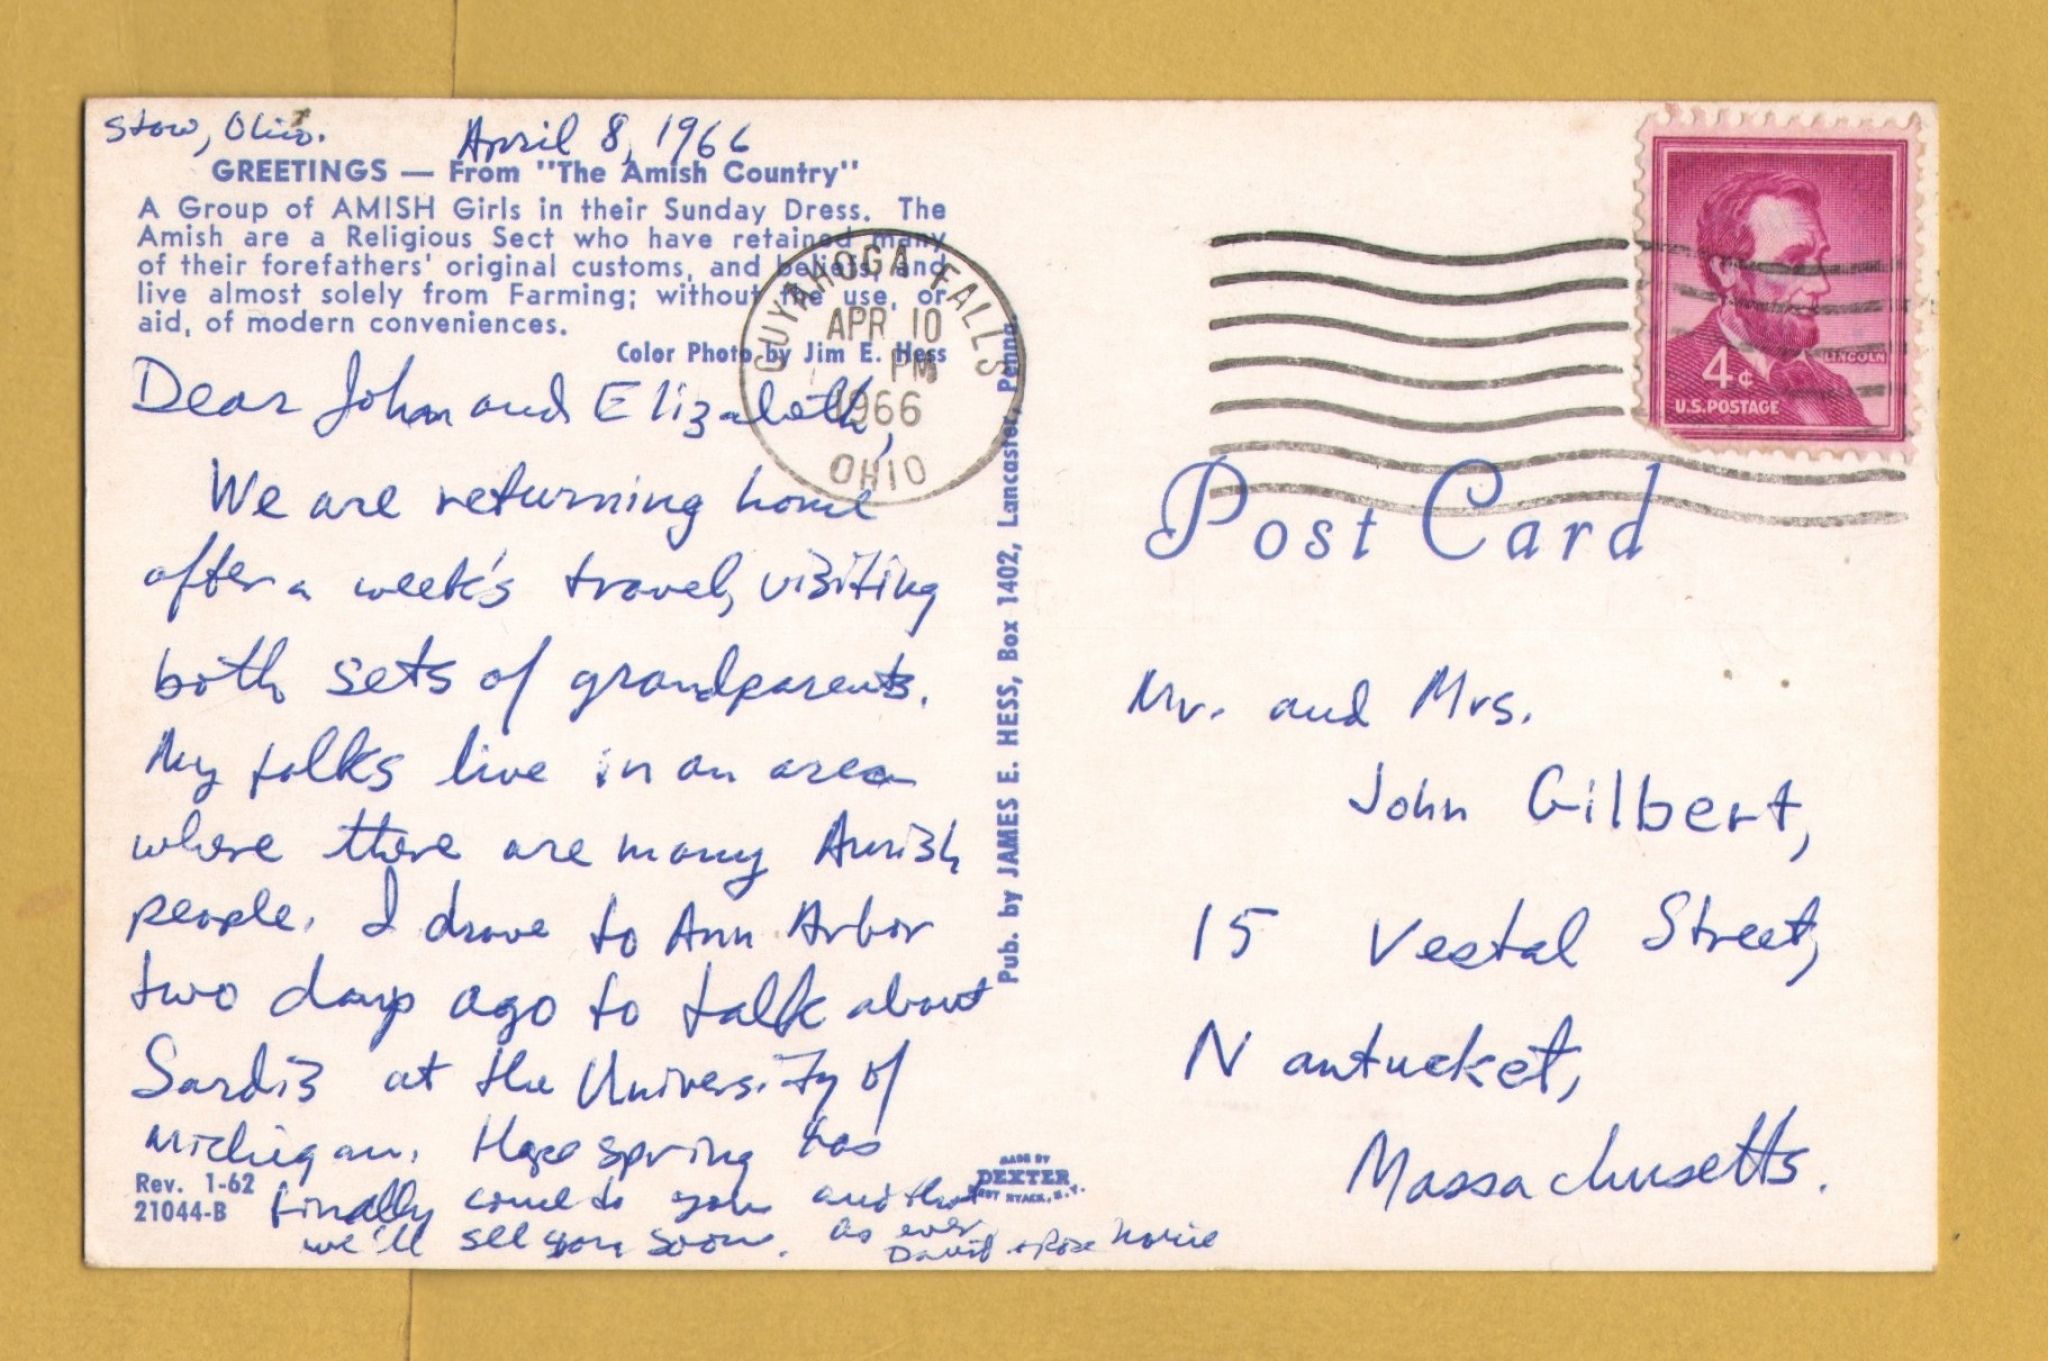 Stow, Ohio.
April 8, 1966
GREETINGS — From "The Amish Country"
A Group of AMISH Girls in their Sunday Dress. The
Amish are a Religious Sect who have retained many
of their forefathers' original customs, and beliefs, and
live almost solely from Farming; without the use, or
aid, of modern conveniences.
Color Photo by Jim E. Hess
Dear John and Elizabeth,
We are returning home
after a week's travel, visiting
both sets of grandparents.
My folks live in an area
where there are many Amish
people. I drove to Ann Arbor
two days ago to talk about
Sardis at the University of
Michigan. Hope spring has
finally come to you and that
we'll see you soon. As ever
David + Rose Marie
Rev. 1-62
21044-B
Pub. by JAMES E. HESS, Box 1402, Lancaster, Penna.
MADE BY
DEXTER
WEST NYACK, N.Y.
CUYAHOGA FALLS
APR 10
PM
1966
OHIO
LINCOLN
4¢
U.S. POSTAGE
Post Card
Mr. and Mrs.
John Gilbert,
15 Vestal Street,
Nantucket,
Massachusetts.